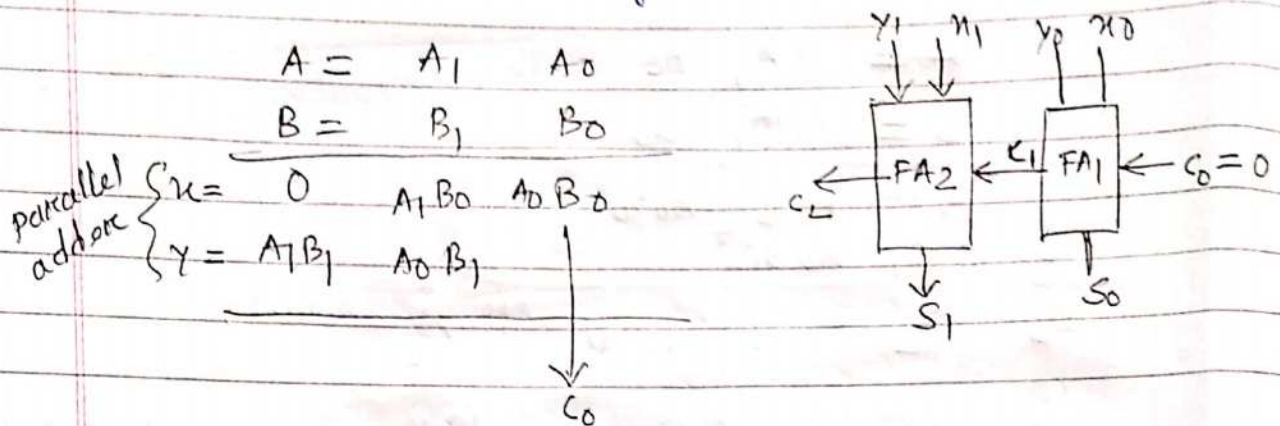 A = A₁ A₀
B = B₁ B₀
parallel adder { x = 0 A₁B₀ A₀B₀
Y = A₁B₁ A₀B₁
C₀
Y₁ x₁ Y₀ x₀
C₂ FA₂ C₁ FA₁ C₀ = 0
S₁ S₀